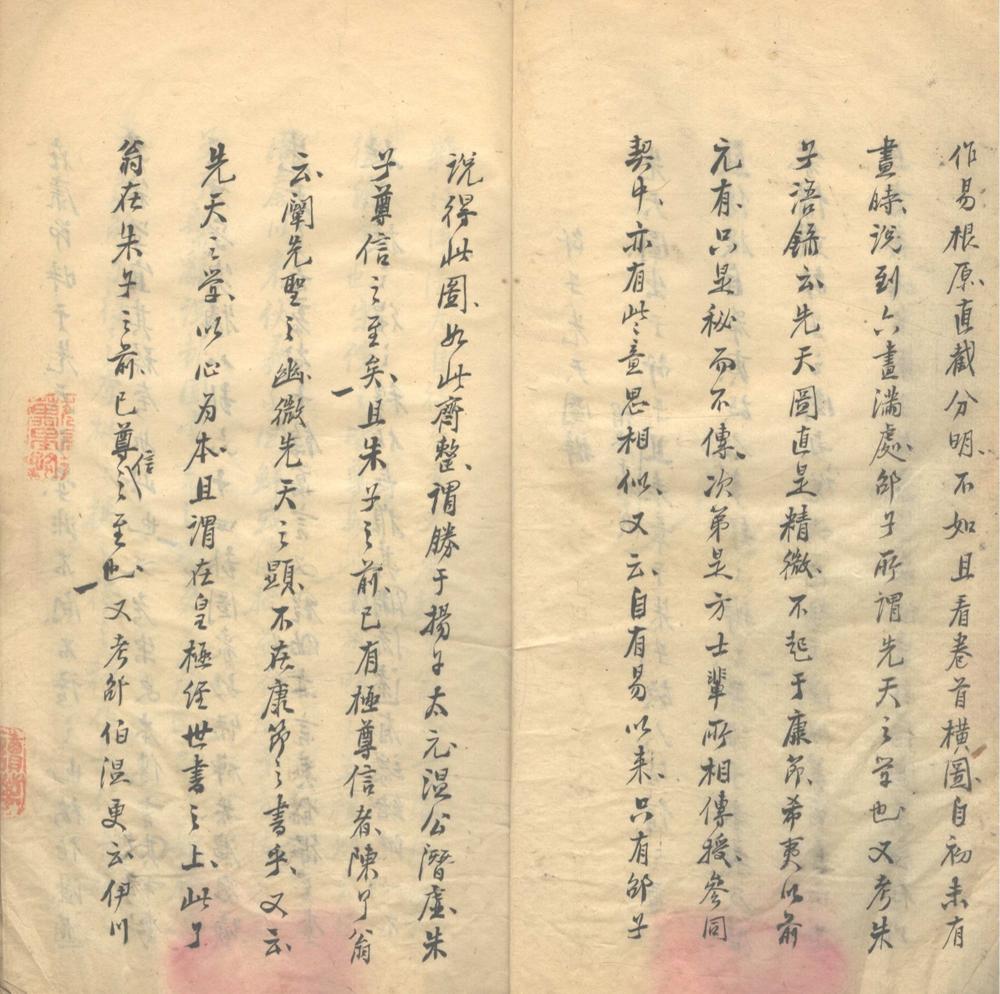 作易根原、直截分明、不如且看卷首橫圖、自初未有
畫時、说到六畫滿處、邵子所謂先天之学也又考朱
子语錄云先天圖直是精微、不起于康節、希夷以前
元有、只是秘而不傳、次第是方士輩所相傳授、參同
契中、亦有些意思相似、又云、自有易以来、只有邵子
说得此圖、如此齊整、謂勝于揚子太元、温公潛虛、朱
子尊信之至矣、且朱子之前、已有極尊信者、陳了翁
云、闡先聖之幽、微先天之顯、不在康節之書乎、又云
先天之学、以心为本、且謂在皇極經世書之上、此了
翁在朱子之前、已尊信之至也、又考邵伯温更云伊川